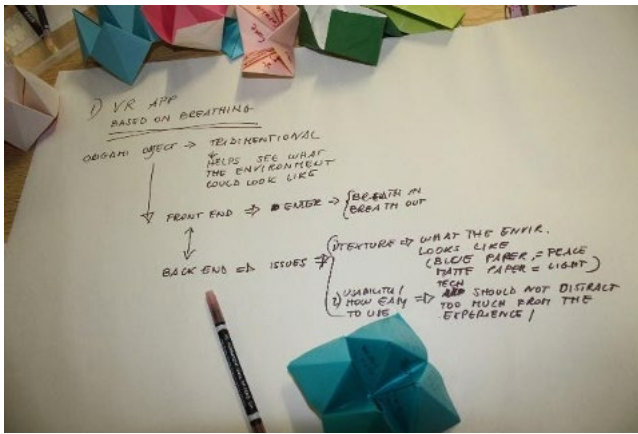 1) VR APP
BASED ON BREATHING
ORIGAMI OBJECT → TRIDIMENTIONAL
HELPS SEE WHAT
THE ENVIRONMENT
COULD LOOK LIKE
FRONT END ⇒ ENTER → { BREATH IN
BREATH OUT
BACK END ⇒ ISSUES ⇒
1) TEXTURE ⇒ WHAT THE ENVIR.
LOOKS LIKE
(BLUE PAPER = PEACE
MATTE PAPER = LIGHT)
2) USABILITY /
HOW EASY
TO USE ⇒
TECH
SHOULD NOT DISTRACT
TOO MUCH FROM THE
EXPERIENCE /